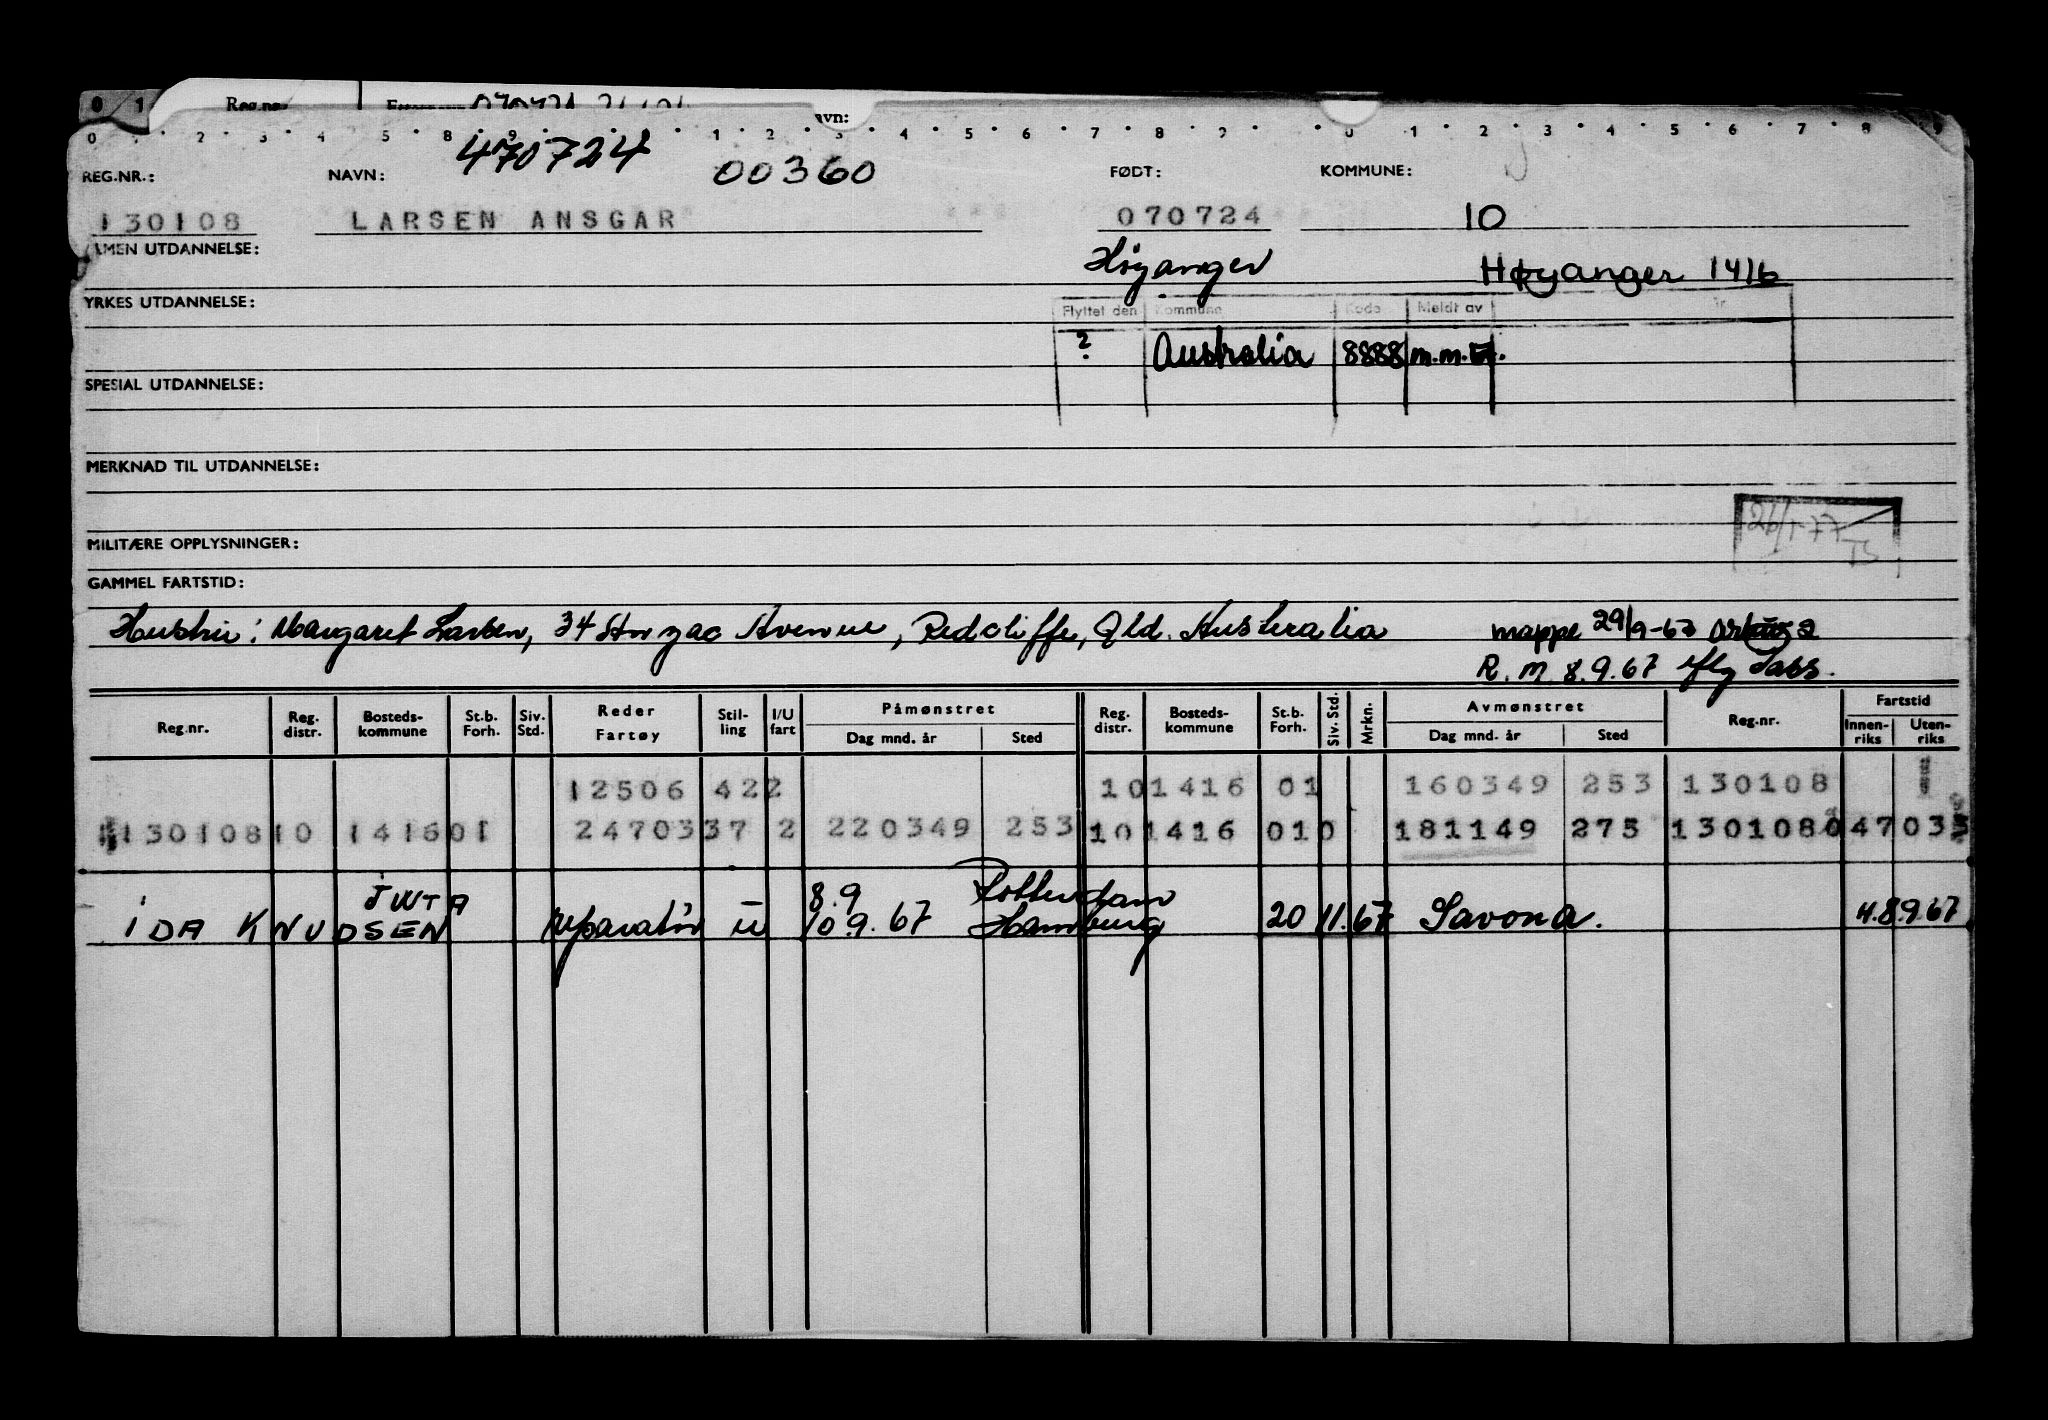 0 1 Reg.nr. avn:
0 2 3 4 5 8 9 1 2 3 4 5 6 7 8 9 0 1 2 3 4 5 6 7 8 9
470724
REG.NR.: NAVN: 00360 FØDT: KOMMUNE:
130108 LARSEN ANSGAR 070724 10
AMEN UTDANNELSE: Høyanger Høyanger 1416
YRKES UTDANNELSE:
Flyttet den Kommune Kode Meldt av
? Australia 8888 m.m.
SPESIAL UTDANNELSE:
MERKNAD TIL UTDANNELSE:
26/1-77
TS
MILITÆRE OPPLYSNINGER:
GAMMEL FARTSTID:
Hustru: Margaret Larsen, 34 Anzac Avenue, Redcliffe, Qld. Australia mappe 29/9-67
R.M 8.9.67
Reg.nr. Reg. distr. Bosteds-kommune St.b. Forh. Siv. Std. Reder Fartøy Stil-ling I/U fart Påmønstret Dag mnd. år Sted Reg. distr. Bosteds-kommune St.b. Forh. Siv. Std. Mrkn. Avmønstret Dag mnd. år Sted Reg.nr. Fartstid Innen-riks Uten-riks
12506 422 101416 01 160349 253 130108
130108 10 1416 01 24703 37 2 220349 253 10 1416 010 181149 275 130108 0 47 03
JWTA 8.9 Rotterdam
IDA KNUDSEN reparatør u 10.9.67 Hamburg 20 11.67 Savona. H.8.9.67